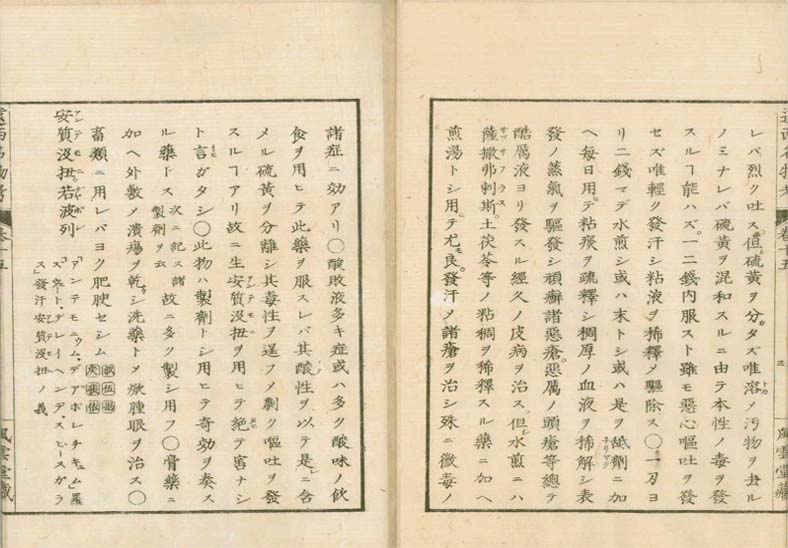 レバ烈ク吐ス但硫黄ヲ分タズ唯溶メ汚物ヲ去ル
ノミナレバ硫黄ヲ混和スルニ由テ本性ノ毒ヲ發
スルヿ能ハズ。一二錢内服スト雖モ惡心嘔吐ヲ發
セズ唯輕ク發汗シ粘液ヲ稀釋メ驅除ス〇一刄ヨ
リ二錢マデ水煎シ或ハ末トシ或ハ是ヲ舐劑ニ加
ヘ每日用テ粘痰ヲ疏釋シ稠厚ノ血液ヲ稀解シ表
發ノ蒸氣ヲ驅發シ頑癬諸惡瘡惡厲ノ頭瘡等總テ
酷厲液ヨリ發スル經久ノ皮病ヲ治ス但水煎ニハ
薩撒弗刺斯土茯苓等ノ粘稠ヲ稀釋スル藥ニ加ヘ
煎湯トシ用テ尤良。發汗メ諸瘡ヲ治シ殊ニ黴毒ノ
遠西名物考
卷十五
風雲堂藏
諸症ニ効アリ〇酸敗液多キ症或ハ多ク酸味ノ飲
食ヲ用ヒテ此藥ヲ服スレバ其酸性ヲ以テ是ニ含
メル硫黄ヲ分離シ其毒性ヲ逞フメ劇ク嘔吐ヲ發
スルヿアリ故ニ生安質没扭ヲ用ヒテ絶テ害ナシ
ト言ガタシ〇此物ハ製劑トシ用ヒテ奇効ヲ奏ス
ル藥トス次ニ記ス諸製劑ヲ云故ニ多ク製シ用フ〇膏藥ニ
加ヘ外敷メ潰瘍ヲ乾シ洗藥トメ焮腫眼ヲ治ス〇
畜類ニ用レバヨク肥腴セシム
安質没扭若波列
「アンテモニウム・デアポレチキュム」羅
「スウェート・デレイヘンデ・スピースガラ
ス」發汗安質没扭ノ義
遠西名物考
卷十五
風雲堂藏